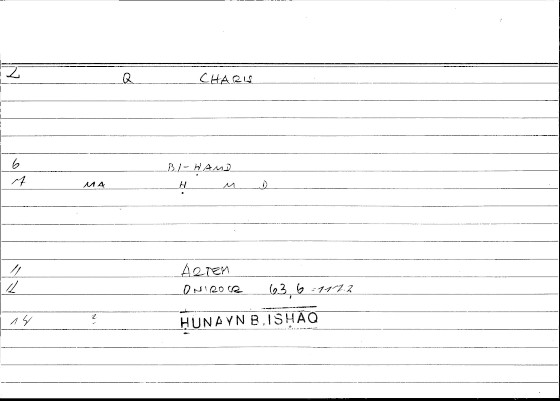 2 Q CHARIS
6 BI-ḤAMD
7 MA Ḥ M D
11 ARTEM
12 ONIROCR 63,6 - 11.2
14 ? ḤUNAYN B. ISḤĀQ